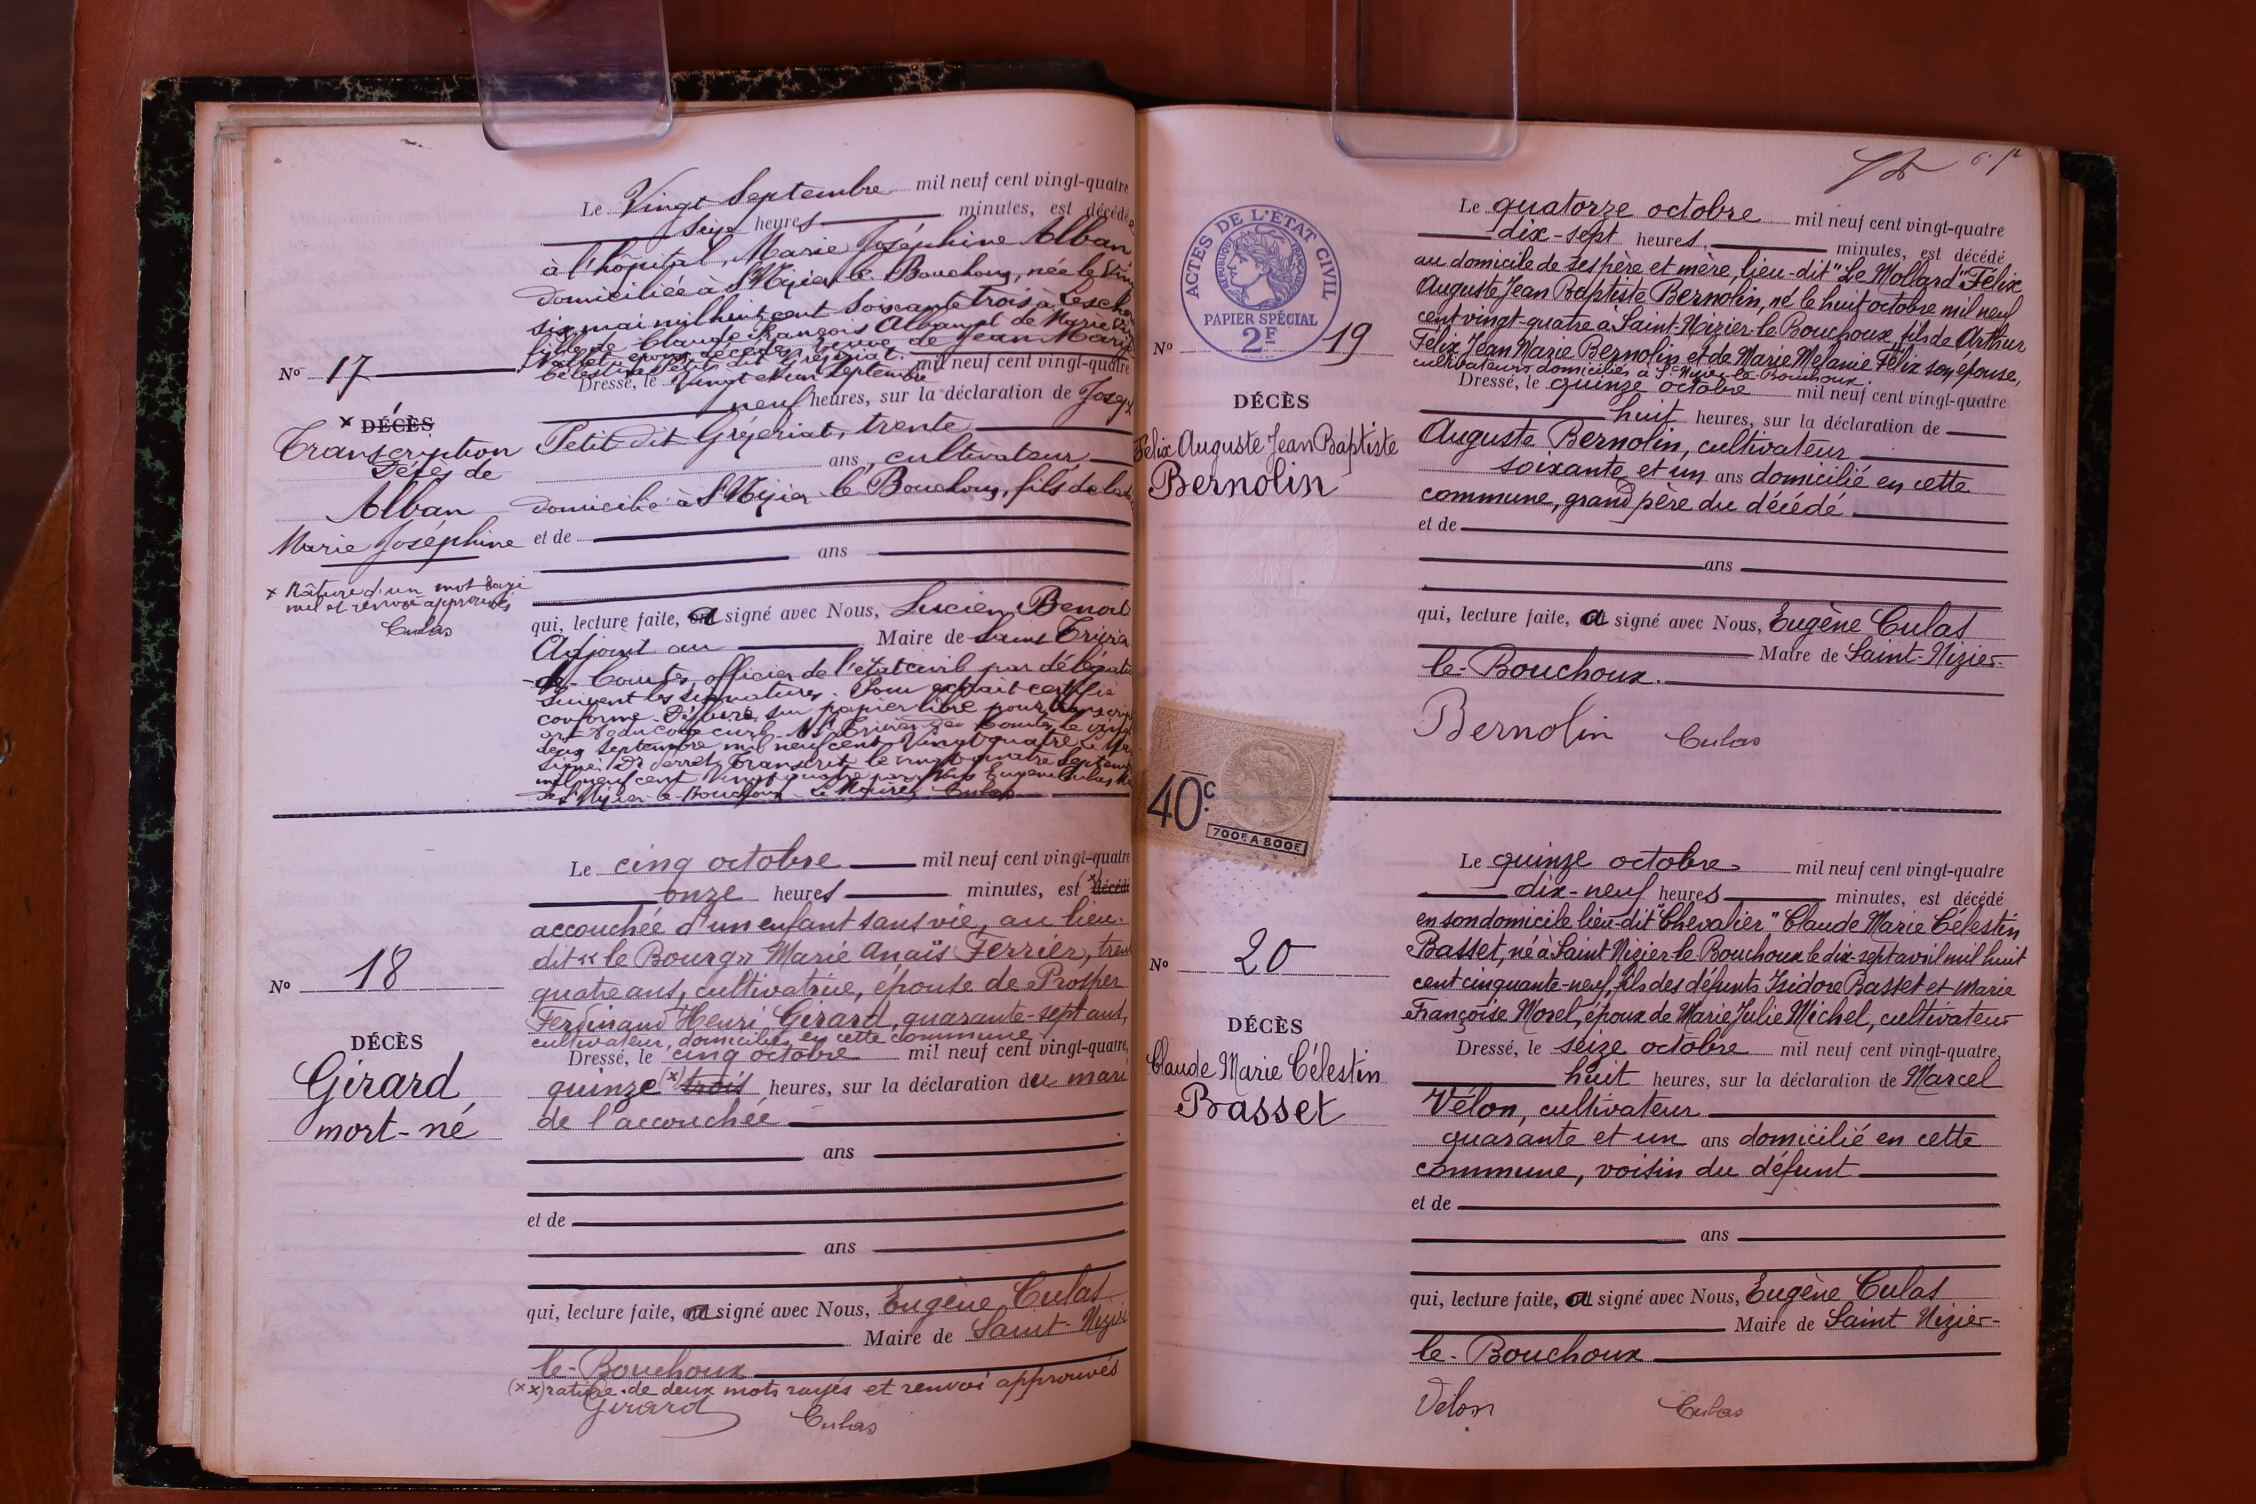 Le Vingt Septembre mil neuf cent vingt-quatre
seize heures minutes, est décédée
à l'hôpital, Marie Joséphine Alban
domiciliée à St Nizier le Bouchoux, née le Vingt
six mai mil huit cent soixante trois à
fille de Claude François Alban et de Marie
époux décédés, veuve de Jean Marie
Célestin Petit dit Gréjeriat. mil neuf cent vingt-quatre
Dressé, le Vingt et un Septembre
neuf heures, sur la déclaration de Joseph
Petit dit Gréjeriat, trente
ans, cultivateur
domicilié à St Nizier le Bouchoux, fils de la
et de
ans
qui, lecture faite, a signé avec Nous, Lucien Benoit
Adjoint au Maire de Saint Trivier
de Courtes, officier de l'état civil par délégation
Suivent les signatures. Pour extrait certifié
conforme. Délivré sur papier libre pour transcription
art 80 du code civil. St Trivier de Courtes le vingt
deux Septembre mil neuf cent Vingt quatre. Le
Signé: Dr Perret. Transcrit le vingt quatre Septembre
mil neuf cent Vingt quatre par Nous Eugène Culas
de St Nizier le Bouchoux Le Maire, Culas
No 17
x DÉCÈS
Transcription
Décès de
Alban
Marie Joséphine
x Râture d'un mot rayé
nul et renvoi approuvés
Culas
Le cinq octobre mil neuf cent vingt-quatre
onze heures minutes, est (x) décédé
accouchée d'un enfant sans vie, au lieu-
dit « le Bourg » Marie Anaïs Ferrier, trente
quatre ans, cultivatrice, épouse de Prosper
Ferdinand Henri Girard, quarante-sept ans,
cultivateur, domiciliés en cette commune
Dressé, le cinq octobre mil neuf cent vingt-quatre,
quinze (x) trois heures, sur la déclaration du mari
de l'accouchée
ans
et de
ans
qui, lecture faite, a signé avec Nous, Eugène Culas
Maire de Saint-Nizier
le-Bouchoux
(x x) rature de deux mots rayés et renvoi approuvés
Girard Culas
No 18
DÉCÈS
Girard
mort-né
ACTES DE L'ETAT CIVIL
PAPIER SPÉCIAL
2F
No 19
DÉCÈS
Félix Auguste Jean Baptiste
Bernolin
Le quatorze octobre mil neuf cent vingt-quatre
dix-sept heures, minutes, est décédé
au domicile de ses père et mère, lieu-dit "Le Mollard" Félix
Auguste Jean Baptiste Bernolin, né le huit octobre mil neuf
cent vingt-quatre à Saint-Nizier-le Bouchoux, fils de Arthur
Félix Jean Marie Bernolin et de Marie Mélanie Félix son épouse,
cultivateurs domiciliés à St Nizier-le-Bouchoux.
Dressé, le quinze octobre mil neuf cent vingt-quatre
huit heures, sur la déclaration de
Auguste Bernolin, cultivateur
soixante et un ans domicilié en cette
commune, grand père du décédé
et de
ans
qui, lecture faite, a signé avec Nous, Eugène Culas
Maire de Saint-Nizier-
le-Bouchoux.
Bernolin Culas
40c
700F A 800F
No 20
DÉCÈS
Claude Marie Célestin
Basset
Le quinze octobre mil neuf cent vingt-quatre
dix-neuf heures minutes, est décédé
en son domicile lieu-dit "Chevalier" Claude Marie Célestin
Basset, né à Saint Nizier-le-Bouchoux le dix-sept avril mil huit
cent cinquante-neuf, fils des défunts Isidore Basset et Marie
Françoise Morel, époux de Marie Julie Michel, cultivateur
Dressé, le seize octobre mil neuf cent vingt-quatre,
huit heures, sur la déclaration de Marcel
Vélon, cultivateur
quarante et un ans domicilié en cette
commune, voisin du défunt
et de
ans
qui, lecture faite, a signé avec Nous, Eugène Culas
Maire de Saint Nizier-
le-Bouchoux
Vélon Culas